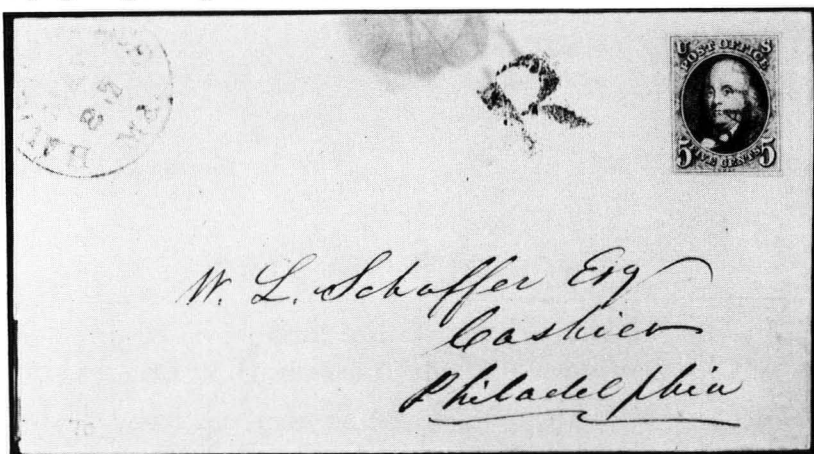 R
U S
POST OFFICE
FIVE CENTS
5 5
W. L. Schaffer Esq
Cashier
Philadelphia